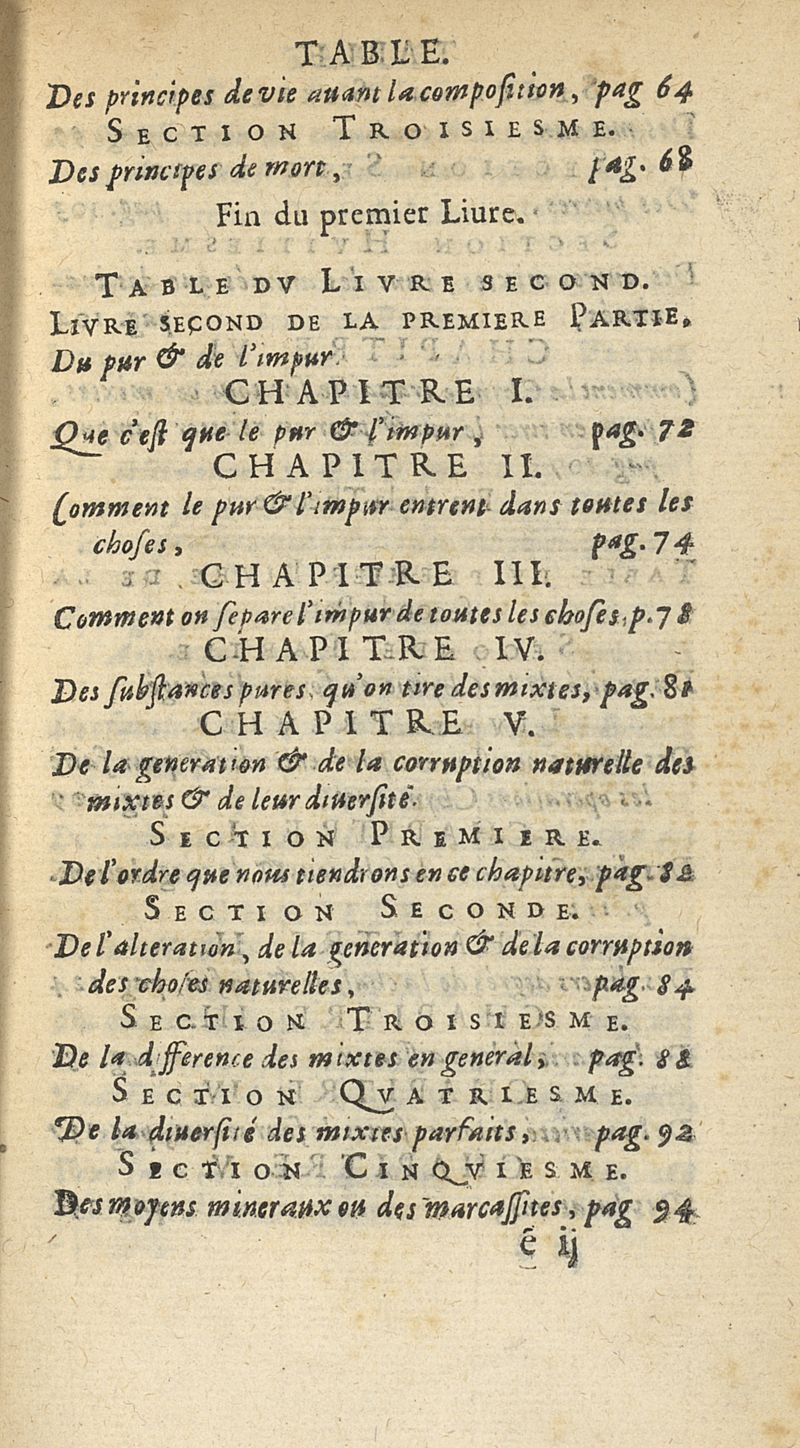 TABLE.
Des principes de vie auant la composition, pag 64
SECTION TROISIESME.
Des principes de mort, pag. 68
Fin du premier Liure.
TABLE DV LIVRE SECOND.
LIVRE SECOND DE LA PREMIERE PARTIE,
Du pur & de l'impur
CHAPITRE I.
Que c'eſt que le pur & l'impur, pag. 72
CHAPITRE II.
Comment le pur & l'impur entrent dans toutes les
choſes, pag. 74
CHAPITRE III.
Comment on ſepare l'impur de toutes les choſes, p. 78
CHAPITRE IV.
Des ſubſtances pures, qu'on tire des mixtes, pag. 81
CHAPITRE V.
De la generation & de la corruption naturelle des
mixtes & de leur diuerſité.
SECTION PREMIERE.
De l'ordre que nous tiendrons en ce chapitre, pag. 82
SECTION SECONDE.
De l'alteration, de la generation & de la corruption
des choſes naturelles, pag. 84
SECTION TROISIESME.
De la difference des mixtes en general, pag. 88
SECTION QVATRIESME.
De la diuerſité des mixtes parfaits, pag. 92
SECTION CINQVIESME.
Des moyens mineraux ou des marcaſſites, pag 94
é ij